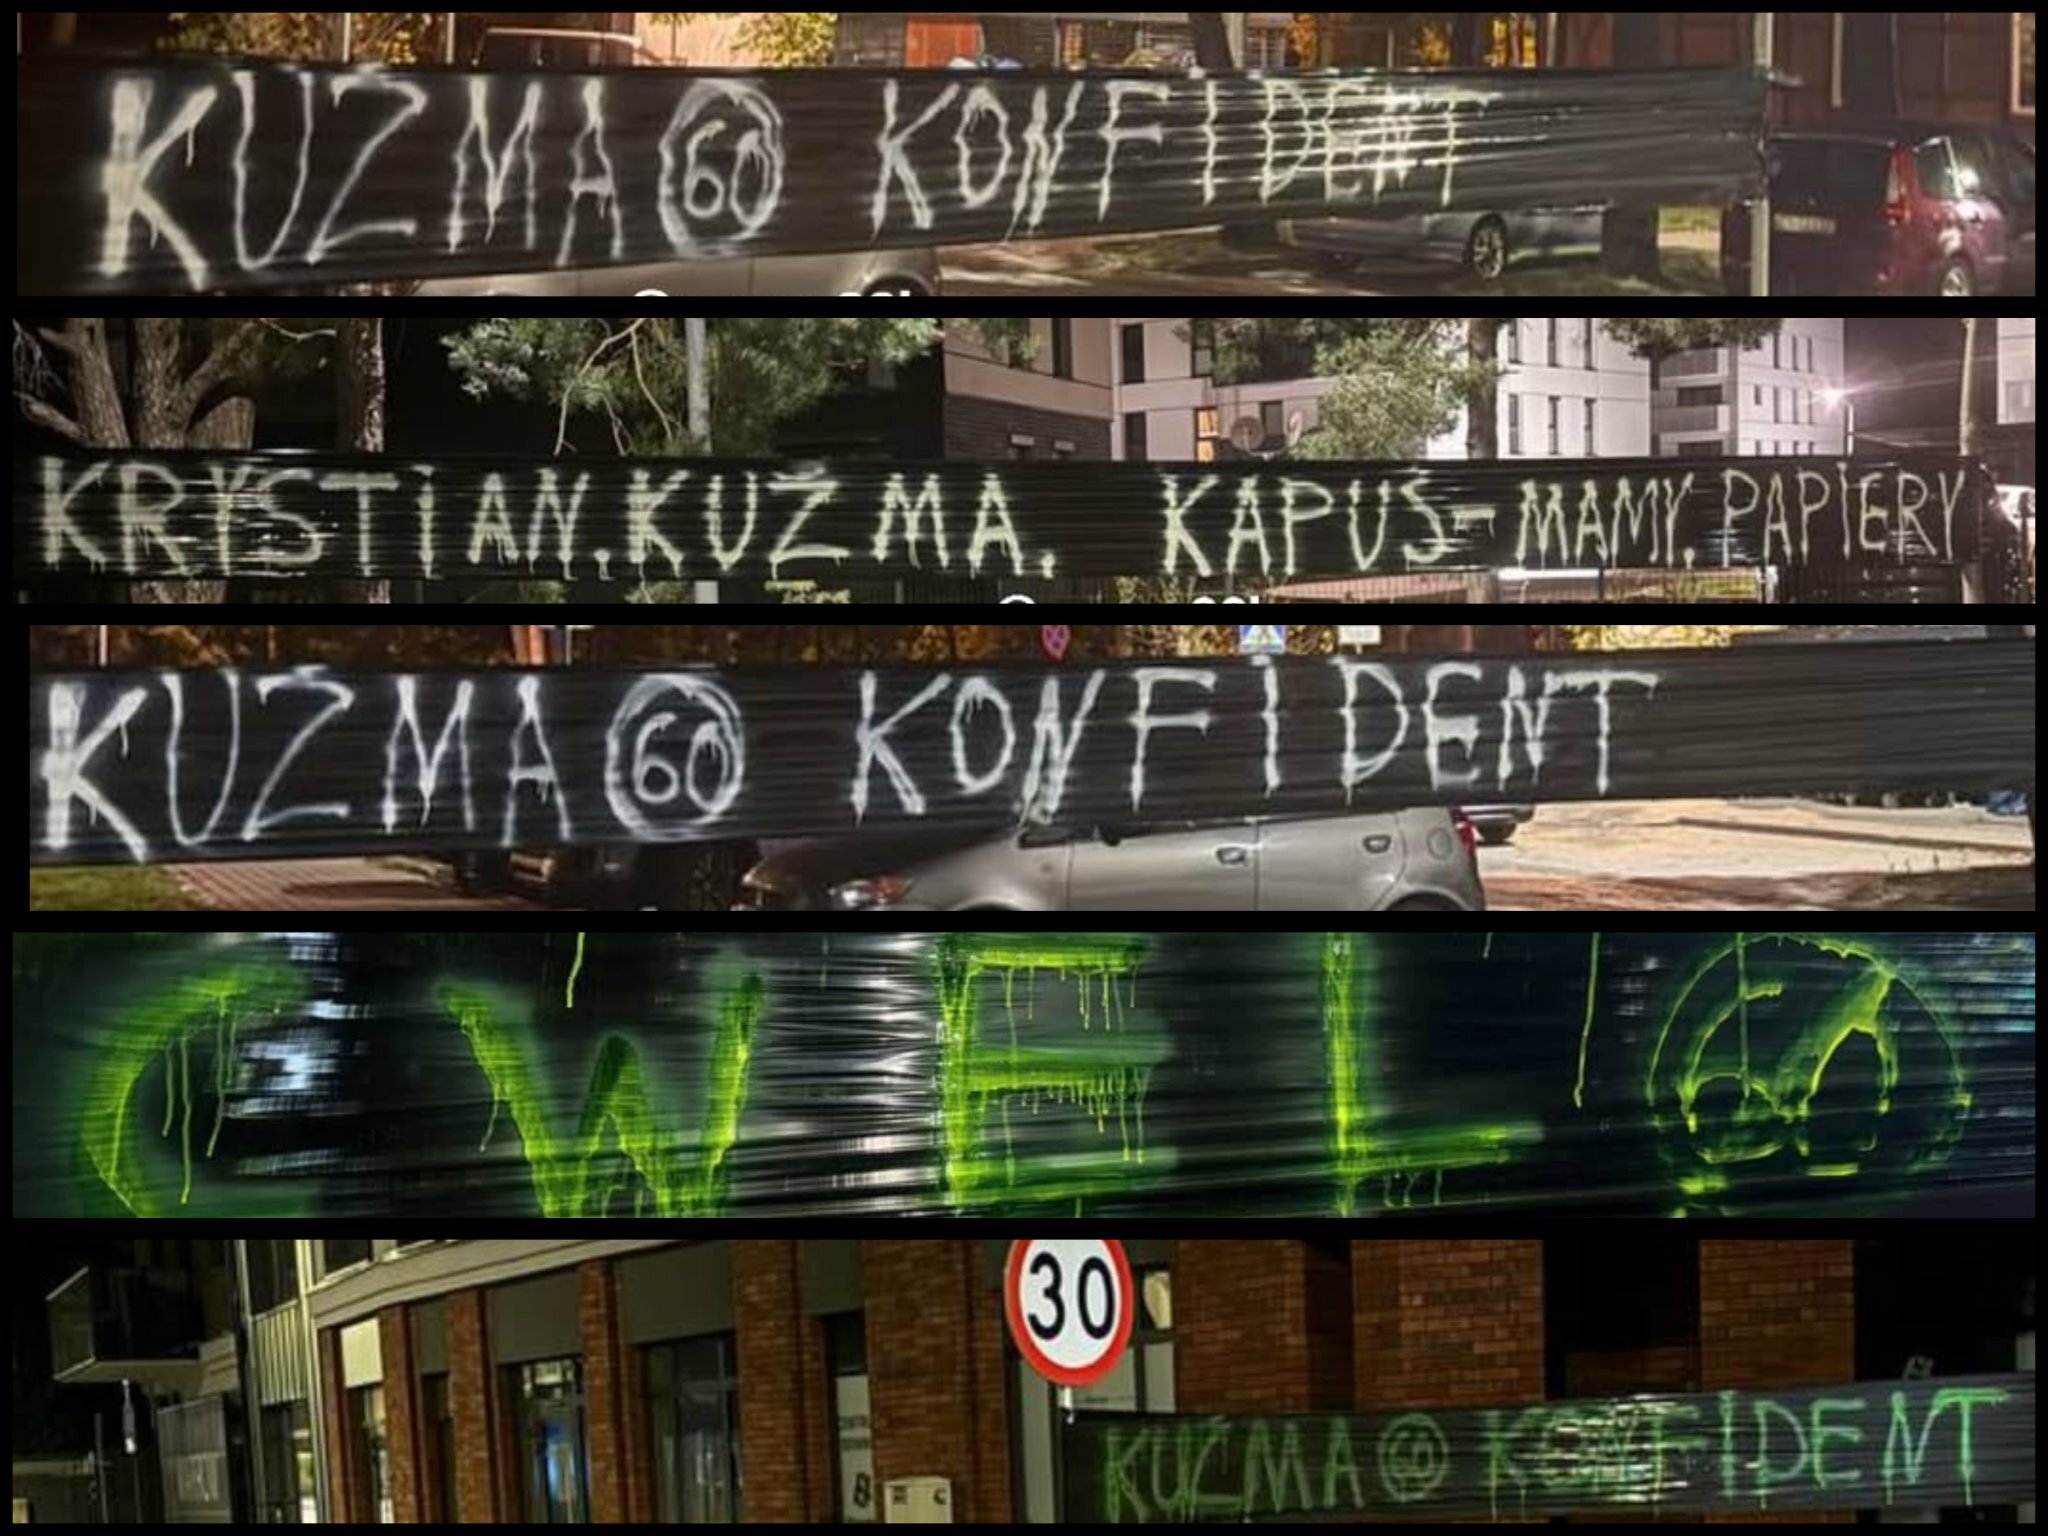 KUŹMA 60 KONFIDENT
KRYSTIAN.KUŹMA. KAPUŚ-MAMY.PAPIERY
KUŹMA 60 KONFIDENT
CWEL 60
30
KUŹMA 60 KONFIDENT